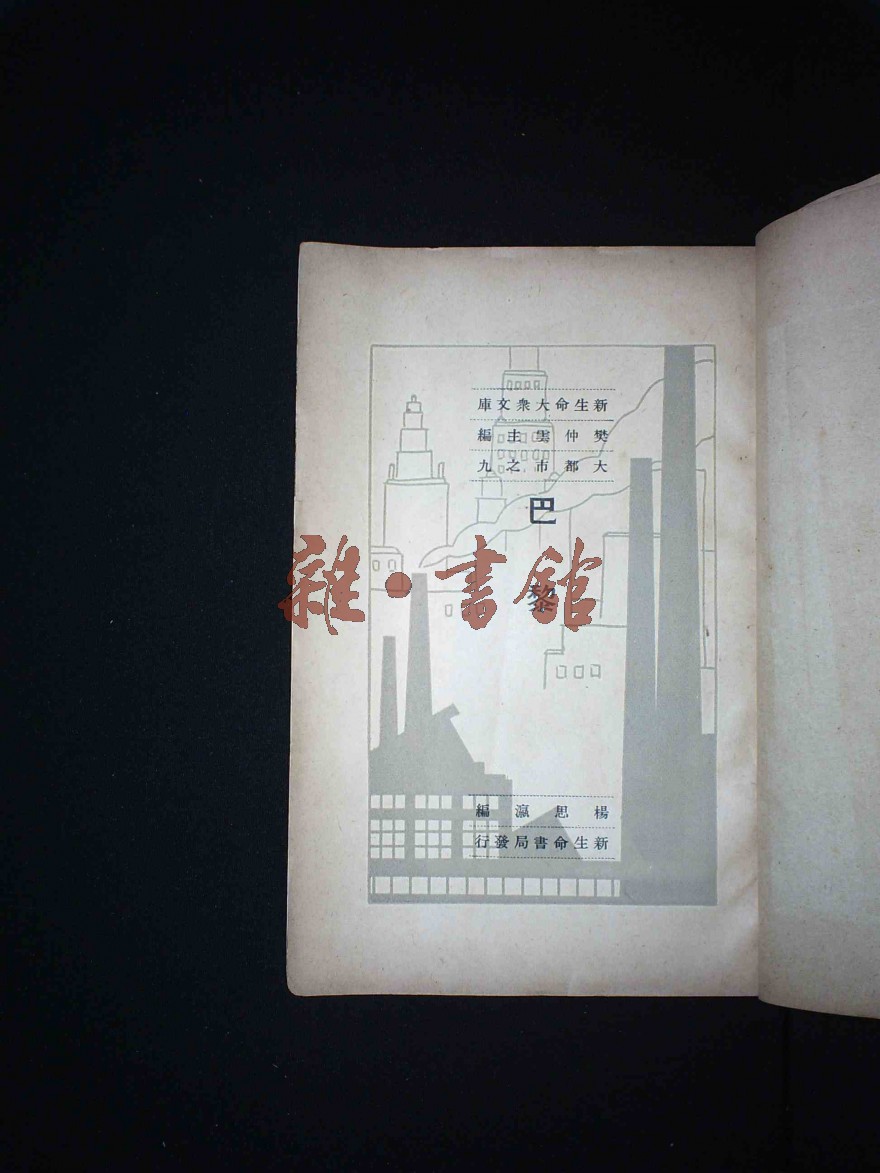 新生命大衆文庫
樊仲雲主編
大都市之九
巴
黎
雜·書館
楊思瀛編
新生命書局發行